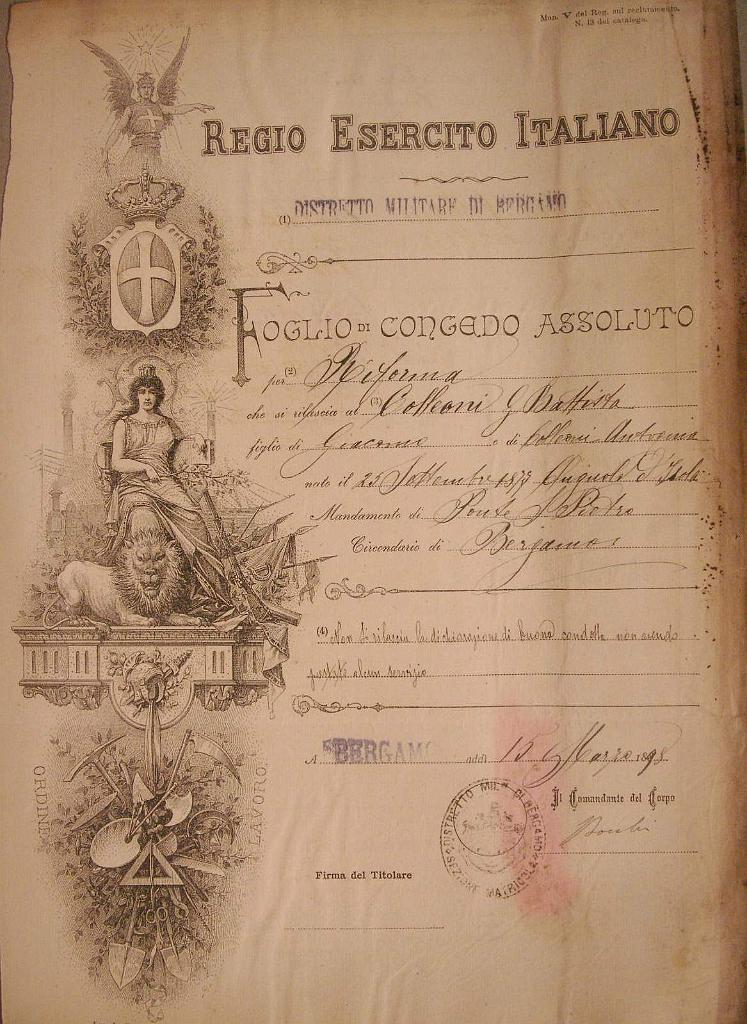 Mod. V del Reg. sul reclutamento.
N. 13 del catalogo.
REGIO ESERCITO ITALIANO
(1) DISTRETTO MILITARE DI BERGAMO
FOGLIO DI CONGEDO ASSOLUTO
per (2) Riforma
che si rilascia al (3) Colleoni G Battista
figlio di Giacomo e di Colleoni Antonia
nato il 25 Settembre 1873 d'Isola
Mandamento di Ponte S Pietro
Circondario di Bergamo
(4) Non si rilascia la dichiarazione di buona condotta non avendo
prestato alcun servizio
A BERGAMO addì 15 Marzo 1895
Il Comandante del Corpo
DISTRETTO MILRE DI BERGAMO
SEZIONE MATRICOLA
Firma del Titolare
ORDINE
LAVORO